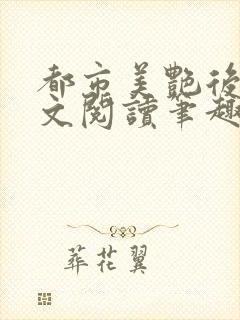 都市美艷後
文閱讀筆趣
葬花翼